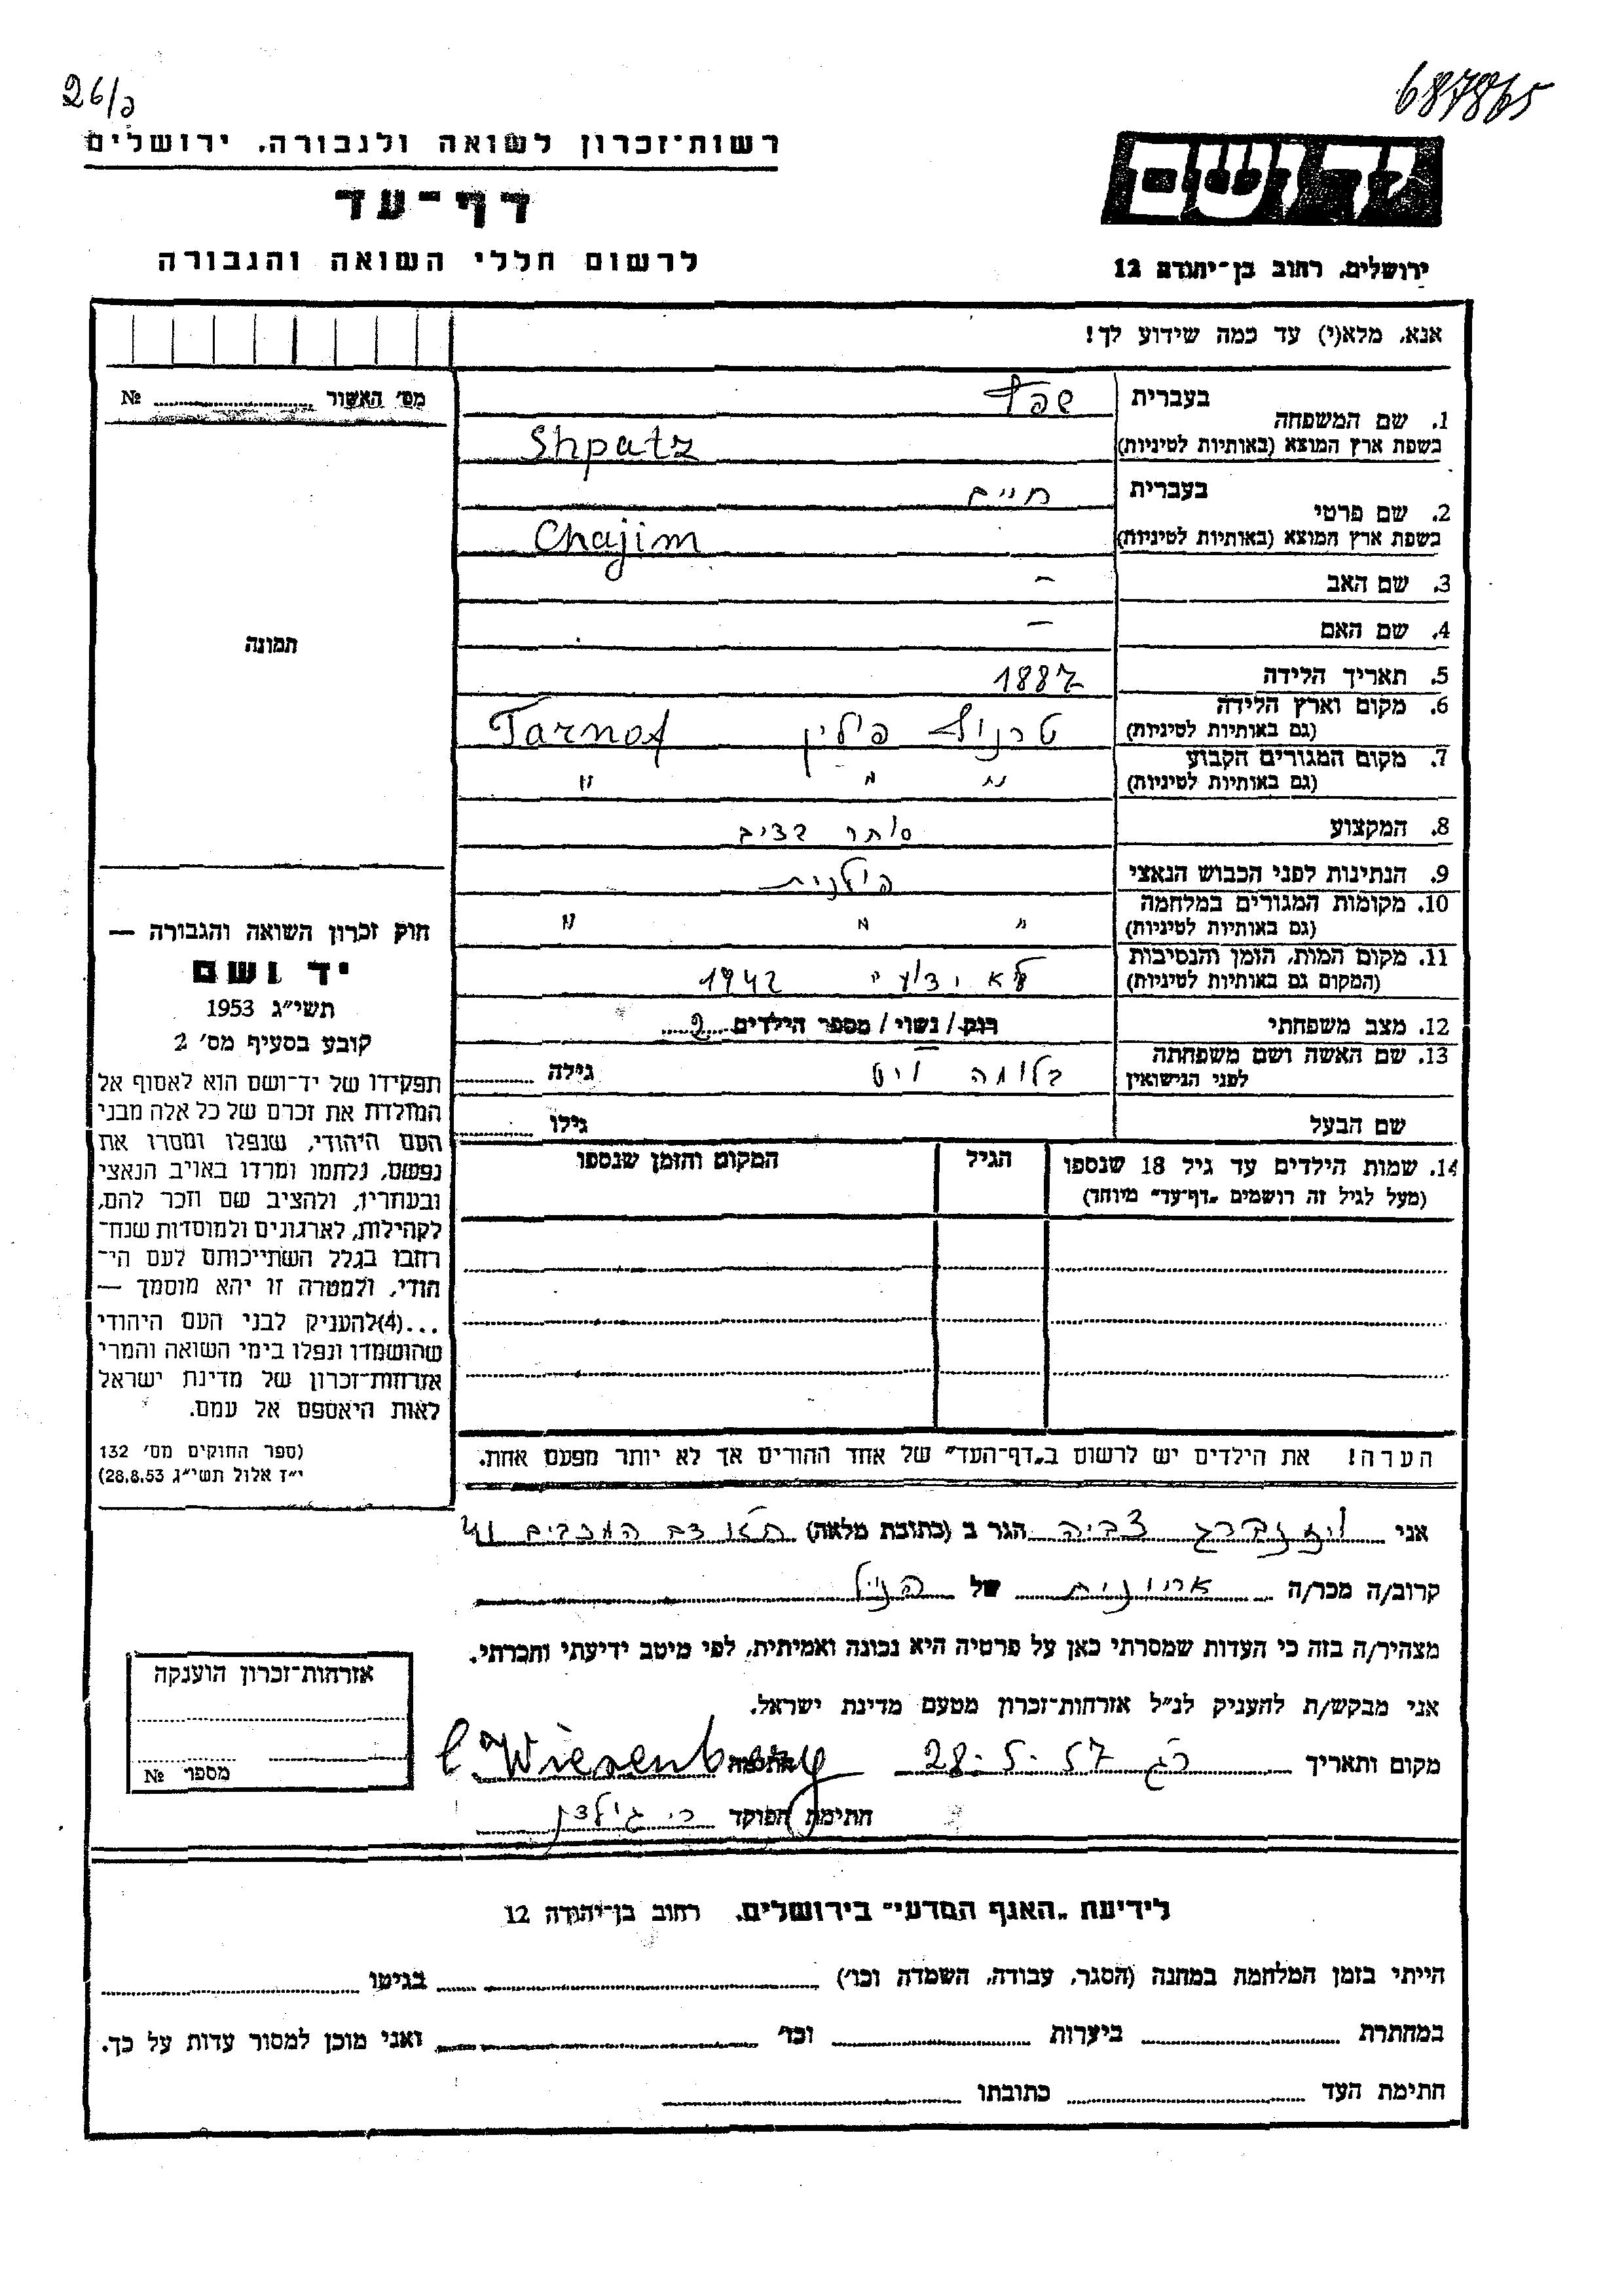 26/ג
687865
רשות־זכרון לשואה ולגבורה. ירושלים
דף־עד
לרשום חללי השואה והגבורה
יד ושם
ירושלים, רחוב בן־יהודה 12
אנא, מלא(י) עד כמה שידוע לך!
מס׳ האשור ........ №
תמונה
1. שם המשפחה
בעברית שפץ
בשפת ארץ המוצא (באותיות לטיניות) Shpatz
2. שם פרטי
בעברית חיים
בשפת ארץ המוצא (באותיות לטיניות) Chajim
3. שם האב –
4. שם האם –
5. תאריך הלידה 1887
6. מקום וארץ הלידה
(גם באותיות לטיניות) טרנוב פולין Tarnof
7. מקום המגורים הקבוע
(גם באותיות לטיניות) " " "
8. המקצוע סוחר
9. הנתינות לפני הכבוש הנאצי פולנית
10. מקומות המגורים במלחמה
(גם באותיות לטיניות) " " "
11. מקום המות, הזמן והנסיבות
(המקום גם באותיות לטיניות) לא ידוע 1942
12. מצב משפחתי רווק/נשוי/מספר הילדים 2
13. שם האשה ושם משפחתה
לפני הנישואין בלומה גילה
שם הבעל גילו
14. שמות הילדים עד גיל 18 שנספו
(מעל לגיל זה רושמים „דף־עד” מיוחד)
הגיל
המקום והזמן שנספו
הערה! את הילדים יש לרשום ב„דף־העד” של אחד ההורים אך לא יותר מפעם אחת.
חוק זכרון השואה והגבורה —
יד ושם
תשי״ג 1953
קובע בסעיף מס׳ 2
תפקידו של יד־ושם הוא לאסוף אל
המולדת את זכרם של כל אלה מבני
העם היהודי, שנפלו ומסרו את
נפשם, נלחמו ומרדו באויב הנאצי
ובעוזריו, ולהציב שם וזכר להם,
לקהילות, לארגונים ולמוסדות שנח־
רבו בגלל השתייכותם לעם הי־
הודי, ולמטרה זו יהא מוסמך —
...(4) להעניק לבני העם היהודי
שהושמדו ונפלו בימי השואה והמרי
אזרחות־זכרון של מדינת ישראל
לאות היאספם אל עמם.
(ספר החוקים מס׳ 132
י״ז אלול תשי״ג 28.8.53)
אני ויזנברג צביה הגר ב (כתובת מלאה) המכבים 41
קרוב/ה מכר/ה של הנ״ל
מצהיר/ה בזה כי העדות שמסרתי כאן על פרטיה היא נכונה ואמיתית, לפי מיטב ידיעתי והכרתי.
אני מבקש/ת להעניק לנ״ל אזרחות־זכרון מטעם מדינת ישראל.
מקום ותאריך רג 28.5.57 חתימה C. Wiesenberg
חתימת הפוקד
אזרחות־זכרון הוענקה
מספר №
לידיעת „האגף המדעי” בירושלים, רחוב בן־יהודה 12
הייתי בזמן המלחמה במחנה (הסגר, עבודה, השמדה וכו׳) בגיטו
במחתרת ביערות וכו׳ ואני מוכן למסור עדות על כך.
חתימת העד כתובתו